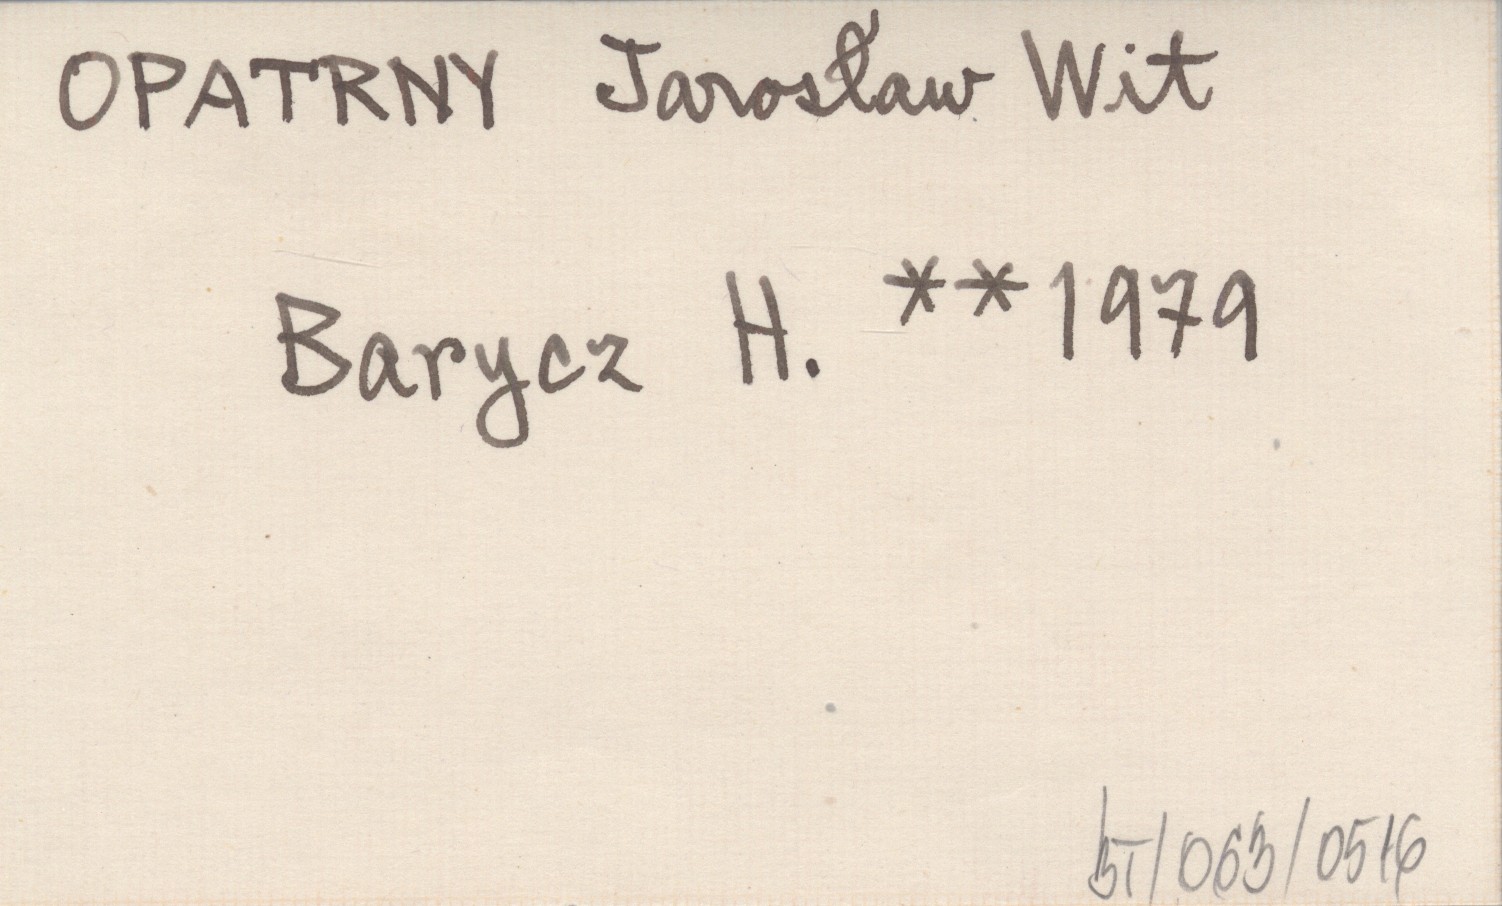 OPATRNY Jarosław Wit
Barycz H. **1979
BT/063/0516